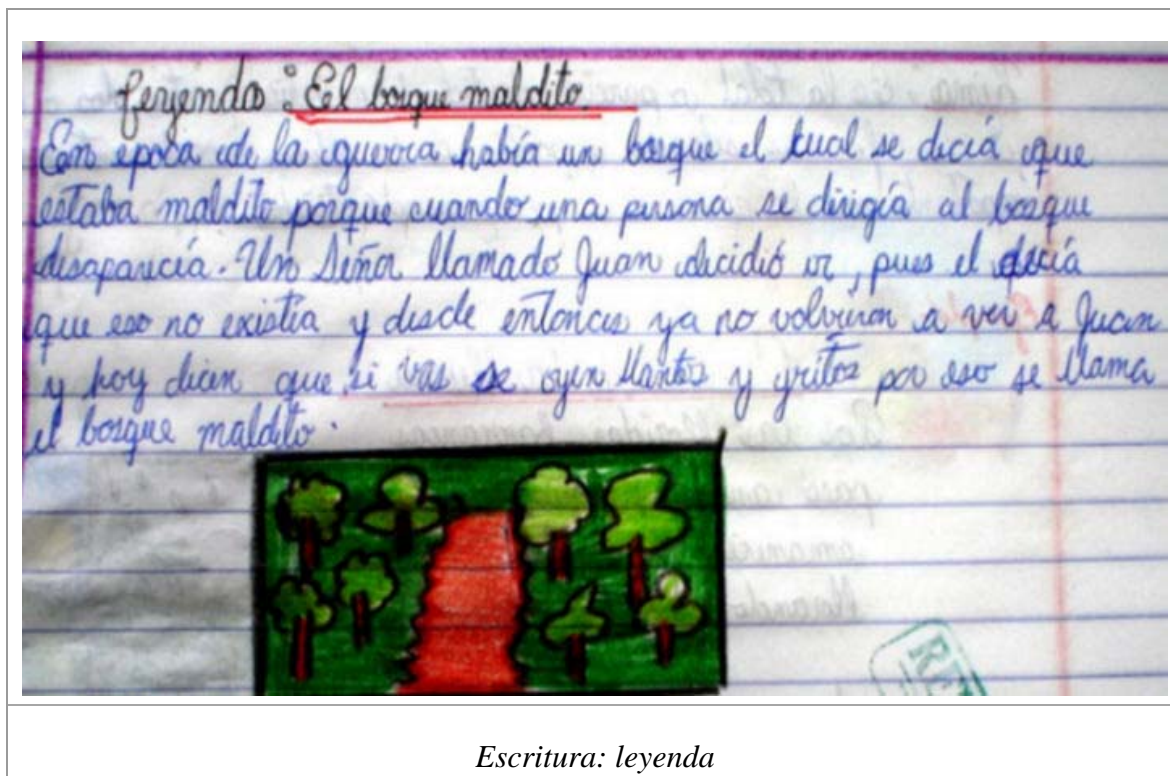 Leyenda: El bosque maldito.
En epoca de la guerra había un bosque el cual se decía que
estaba maldito porque cuando una persona se dirigía al bosque
disaparecía. Un Señor llamado Juan decidió ir, pues el decía
que eso no existía y desde entonces ya no volvieron a ver a Juan
y hoy dicen que si vas se oyen llantos y gritos por eso se llama
el bosque maldito.
Escritura: leyenda